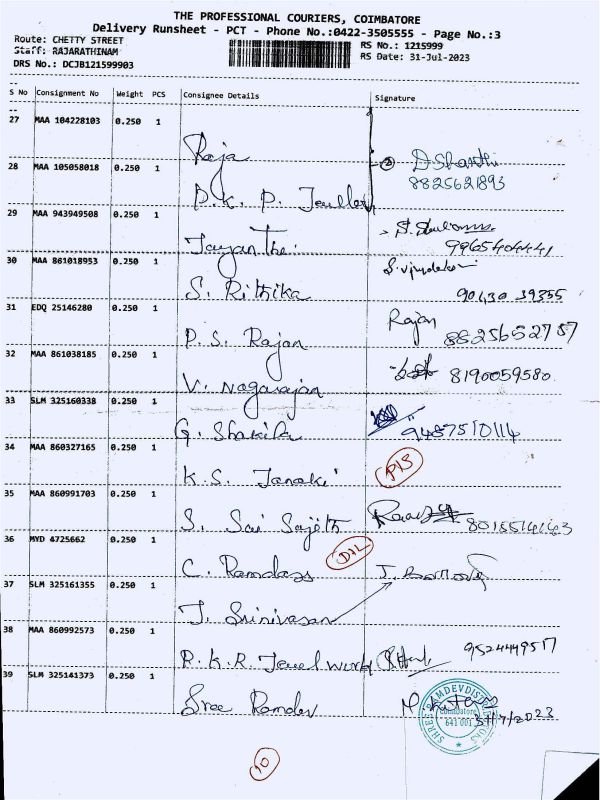 THE PROFESSIONAL COURIERS, COIMBATORE
Delivery Runsheet - PCT - Phone No.:0422-3505555 - Page No.:3
Route: CHETTY STREET
RS No.: 1215999
Staff: RAJARATHINAM
RS Date: 31-Jul-2023
DRS No.: DCJB121599903
S No Consignment No Weight PCS Consignee Details Signature
27 MAA 104228103 0.250 1
Raja
28 MAA 105058018 0.250 1
D Shanthi
8825621893
P. K. P. Jewllery
29 MAA 943949508 0.250 1
Jayanthi
9965404441
30 MAA 861018953 0.250 1
S. Rithika
90430 39355
31 EDQ 25146280 0.250 1
Rajan
P. S. Rajan
8825652757
32 MAA 861038185 0.250 1
8190059580
V. Nagarajan
33 SLM 325160338 0.250 1
G. Shakila
9487510114
34 MAA 860327165 0.250 1
K. S. Janaki
P/S
35 MAA 860991703 0.250 1
S. Sai Sajeth
8015514143
36 MYD 4725662 0.250 1
D/L
C. Ramdass
37 SLM 325161355 0.250 1
J. Srinivasan
38 MAA 860992573 0.250 1
R. K. R. Jewel World
9524449517
39 SLM 325141373 0.250 1
Sree Ramdev
SHREE RAMDEV DISTRIBUTORS
Coimbatore
641 001
31/7/2023
10